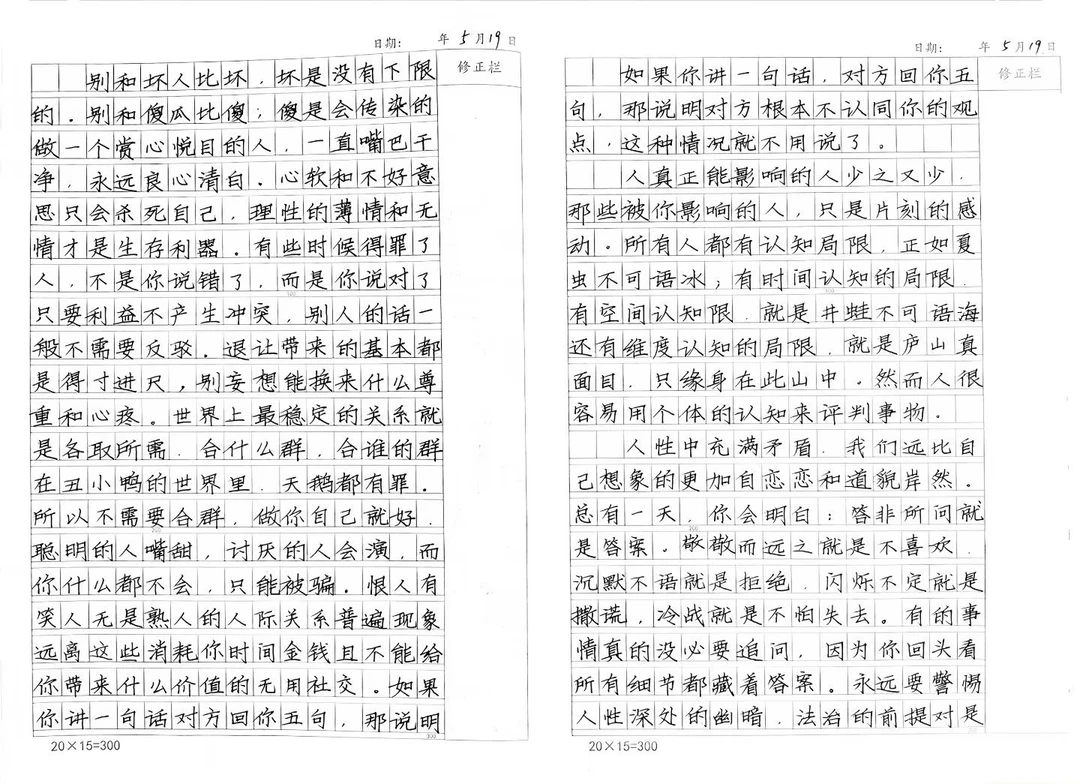 日期: 年 5 月 19 日
修正栏
别和坏人比坏，坏是没有下限
的．别和傻瓜比傻；傻是会传染的
做一个赏心悦目的人，一直嘴巴干
净，永远良心清白．心软和不好意
思只会杀死自己，理性的薄情和无
情才是生存利器．有些时候得罪了
人，不是你说错了，而是你说对了
只要利益不产生冲突，别人的话一
般不需要反驳．退让带来的基本都
是得寸进尺，别妄想能换来什么尊
重和心疼。世界上最稳定的关系就
是各取所需．合什么群，合谁的群
在丑小鸭的世界里．天鹅都有罪．
所以不需要合群，做你自己就好．
聪明的人嘴甜，讨厌的人会演，而
你什么都不会，只能被骗．恨人有
笑人无是熟人的人际关系普遍现象
远离这些消耗你时间金钱且不能给
你带来什么价值的无用社交。如果
你讲一句话对方回你五句，那说明
20×15=300
日期: 年 5 月 19 日
修正栏
如果你讲一句话，对方回你五
句，那说明对方根本不认同你的观
点，这种情况就不用说了。
人真正能影响的人少之又少．
那些被你影响的人，只是片刻的感
动．所有人都有认知局限，正如夏
虫不可语冰；有时间认知的局限．
有空间认知限．就是井蛙不可语海
还有维度认知的局限．就是庐山真
面目．只缘身在此山中．然而人很
容易用个体的认知来评判事物．
人性中充满矛盾．我们远比自
己想象的更加自恋恋和道貌岸然。
总有一天，你会明白：答非所问就
是答案．敬敬而远之就是不喜欢．
沉默不语就是拒绝．闪烁不定就是
撒谎，冷战就是不怕失去。有的事
情真的没必要追问，因为你回头看
所有细节都藏着答案。永远要警惕
人性深处的幽暗．法治的前提对是
20×15=300